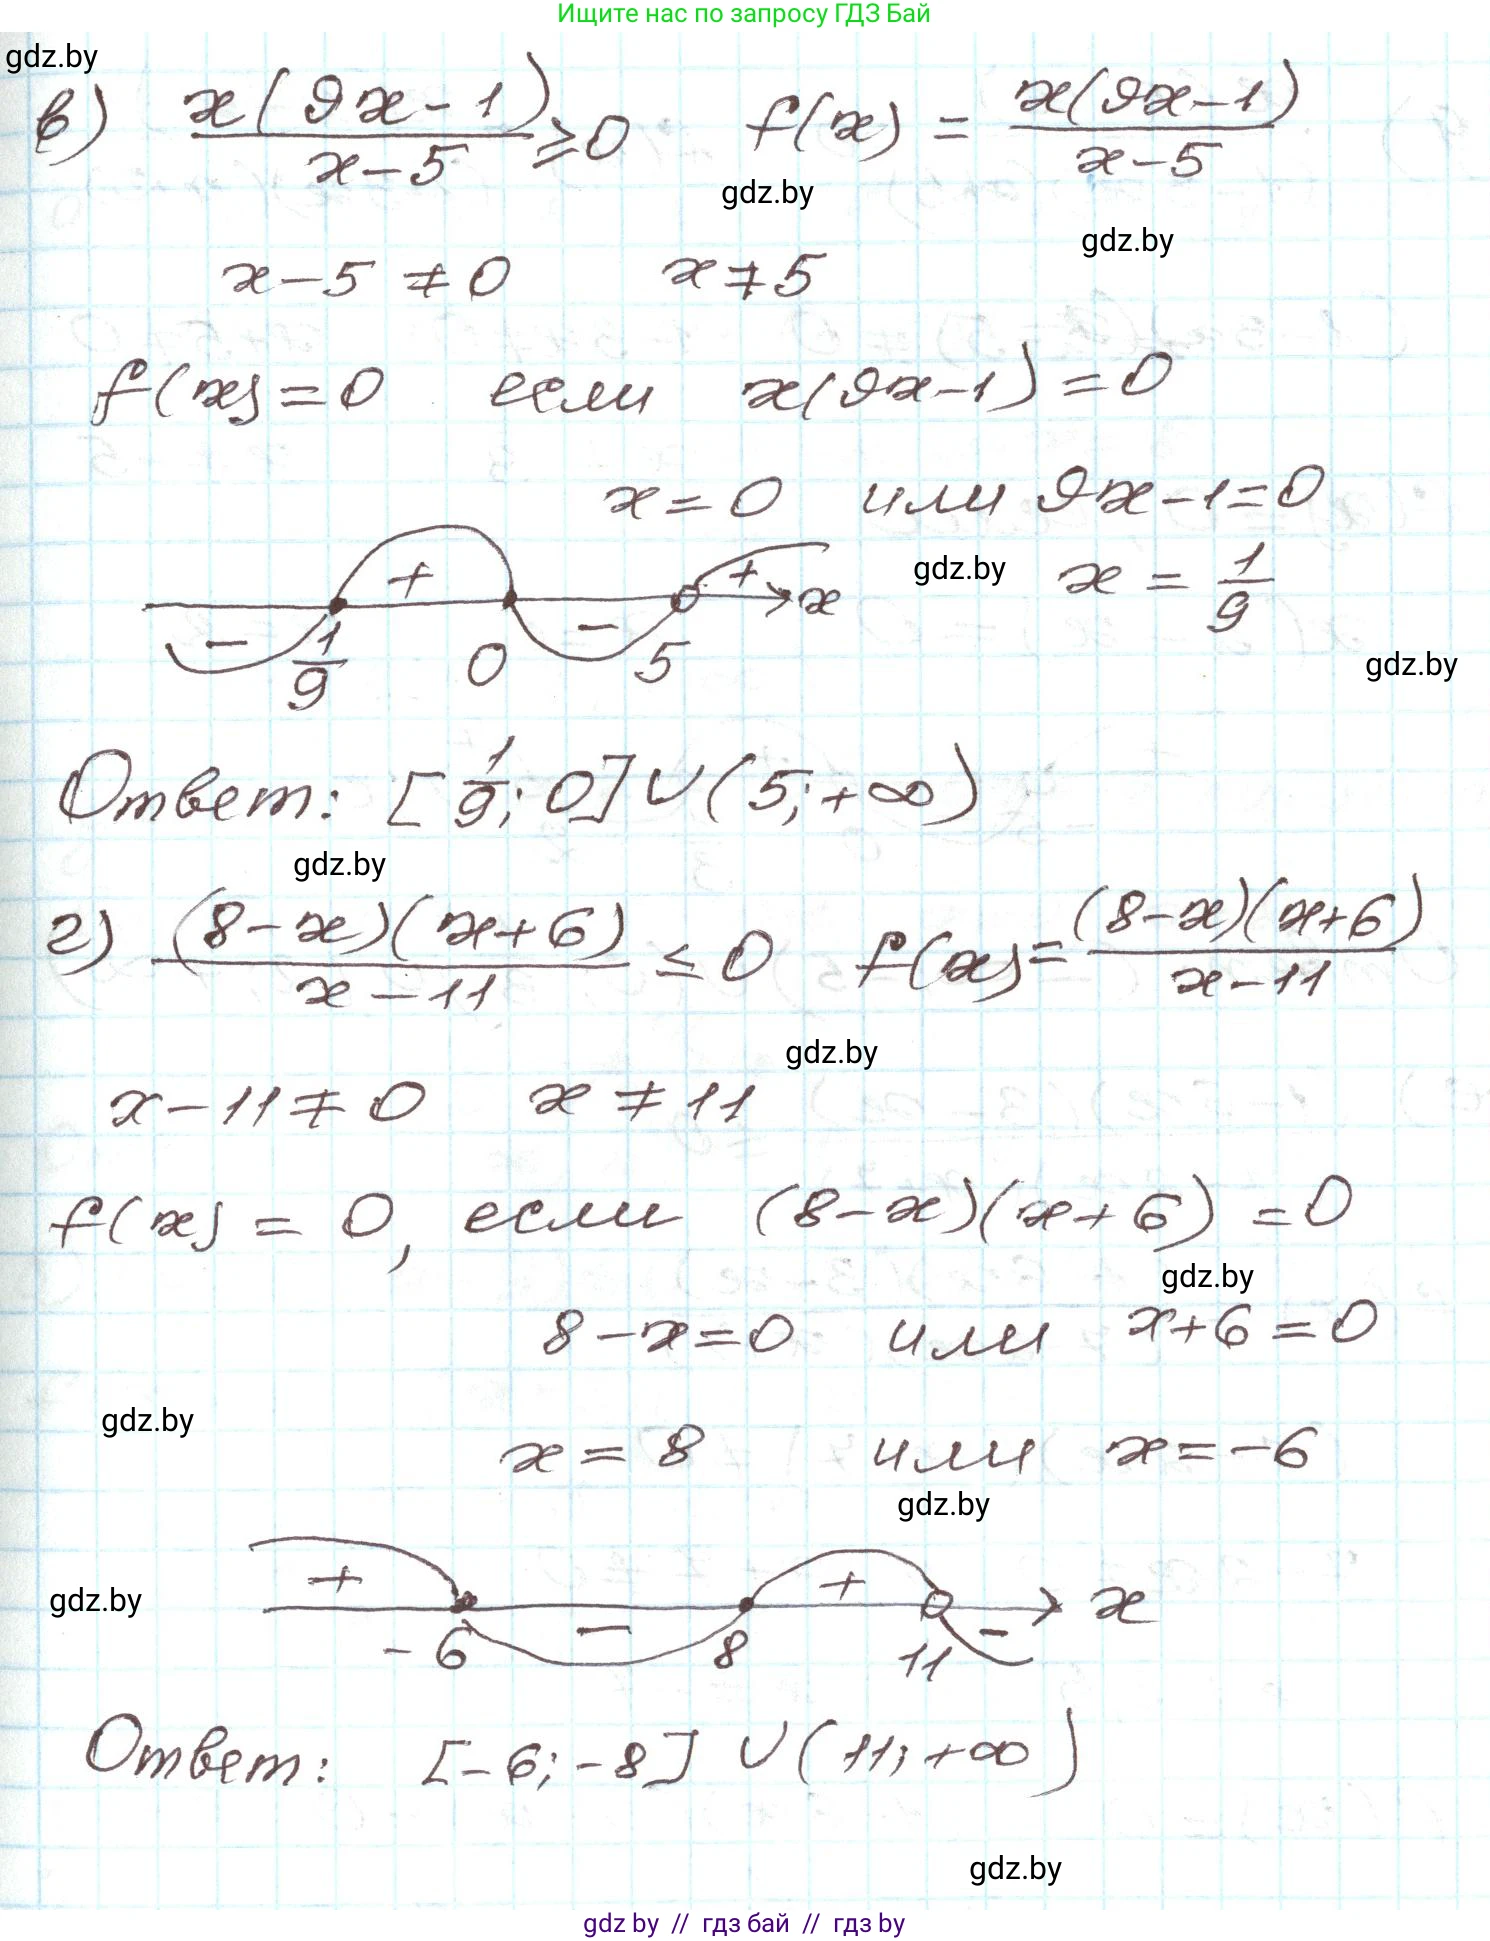 Ищите нас по запросу ГДЗ Бай
gdz.by
в) x(9x-1)/(x-5) ≥ 0 f(x) = x(9x-1)/(x-5)
gdz.by
gdz.by
x-5 ≠ 0 x ≠ 5
f(x) = 0 если x(9x-1) = 0
x = 0 или 9x-1=0
gdz.by
x = 1/9
+ - + x
- 1/9 0 5
gdz.by
Ответ: [1/9; 0] ∪ (5; +∞)
gdz.by
г) (8-x)(x+6)/(x-11) ≤ 0 f(x) = (8-x)(x+6)/(x-11)
gdz.by
x-11 ≠ 0 x ≠ 11
f(x) = 0, если (8-x)(x+6) = 0
gdz.by
8-x=0 или x+6=0
gdz.by
x = 8 или x = -6
gdz.by
gdz.by
+ - + - x
-6 8 11
Ответ: [-6; -8] ∪ (11; +∞)
gdz.by
gdz by // гдз бай // гдз by